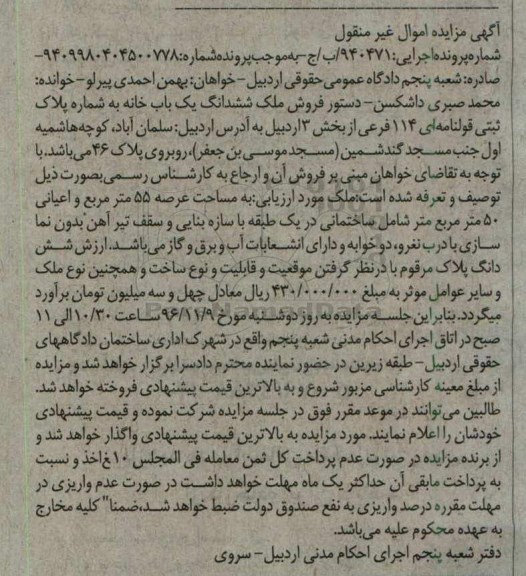 آگهی مزایده اموال غیر منقول
شماره پرونده اجرایی: ۹۴۰۴۷۱/ب/ج-به موجب پرونده شماره: ۹۴۰۹۹۸۰۴۰۴۵۰۰۷۷۸-
صادره: شعبه پنجم دادگاه عمومی حقوقی اردبیل- خواهان: بهمن احمدی پیرلو- خوانده:
محمد صبری داشکسن- دستور فروش ملک ششدانگ یک باب خانه به شماره پلاک
ثبتی قولنامه‌ای ۱۱۴ فرعی از بخش ۳ اردبیل به آدرس اردبیل: سلمان آباد، کوچه هاشمیه
اول جنب مسجد گندشمین (مسجد موسی بن جعفر)، روبروی پلاک ۴۶ می‌باشد، با
توجه به تقاضای خواهان مبنی بر فروش آن و ارجاع به کارشناس رسمی بصورت ذیل
توصیف و تعرفه شده است: ملک مورد ارزیابی: به مساحت عرصه ۵۵ متر مربع و اعیانی
۵۰ متر مربع متر شامل ساختمانی در یک طبقه با سازه بنایی و سقف تیر آهن بدون نما
سازی با درب نفررو، دو خوابه و دارای انشعابات آب و برق و گاز می‌باشد. ارزش شش
دانگ پلاک مرقوم با درنظر گرفتن موقعیت و قابلیت و نوع ساخت و همچنین نوع ملک
و سایر عوامل موثر به مبلغ ۴۳۰/۰۰۰/۰۰۰ ریال معادل چهل و سه میلیون تومان برآورد
میگردد. بنابر این جلسه مزایده به روز دوشنبه مورخ ۹۶/۱۱/۹ ساعت ۱۰/۳۰ الی ۱۱
صبح در اتاق اجرای احکام مدنی شعبه پنجم واقع در شهرک اداری ساختمان دادگاههای
حقوقی اردبیل- طبقه زیرین در حضور نماینده محترم دادسرا برگزار خواهد شد و مزایده
از مبلغ معینه کارشناسی مزبور شروع و به بالاترین قیمت پیشنهادی فروخته خواهد شد.
طالبین می‌توانند در موعد مقرر فوق در جلسه مزایده شرکت نموده و قیمت پیشنهادی
خودشان را اعلام نمایند. مورد مزایده به بالاترین قیمت پیشنهادی واگذار خواهد شد و
از برنده مزایده در صورت عدم پرداخت کل ثمن معامله فی المجلس ۱۰٪ اخذ و نسبت
به پرداخت مابقی آن حداکثر یک ماه مهلت خواهد داشت در صورت عدم واریزی در
مهلت مقرره درصد واریزی به نفع صندوق دولت ضبط خواهد شد، ضمنا" کلیه مخارج
به عهده محکوم علیه می‌باشد.
دفتر شعبه پنجم اجرای احکام مدنی اردبیل- سروی